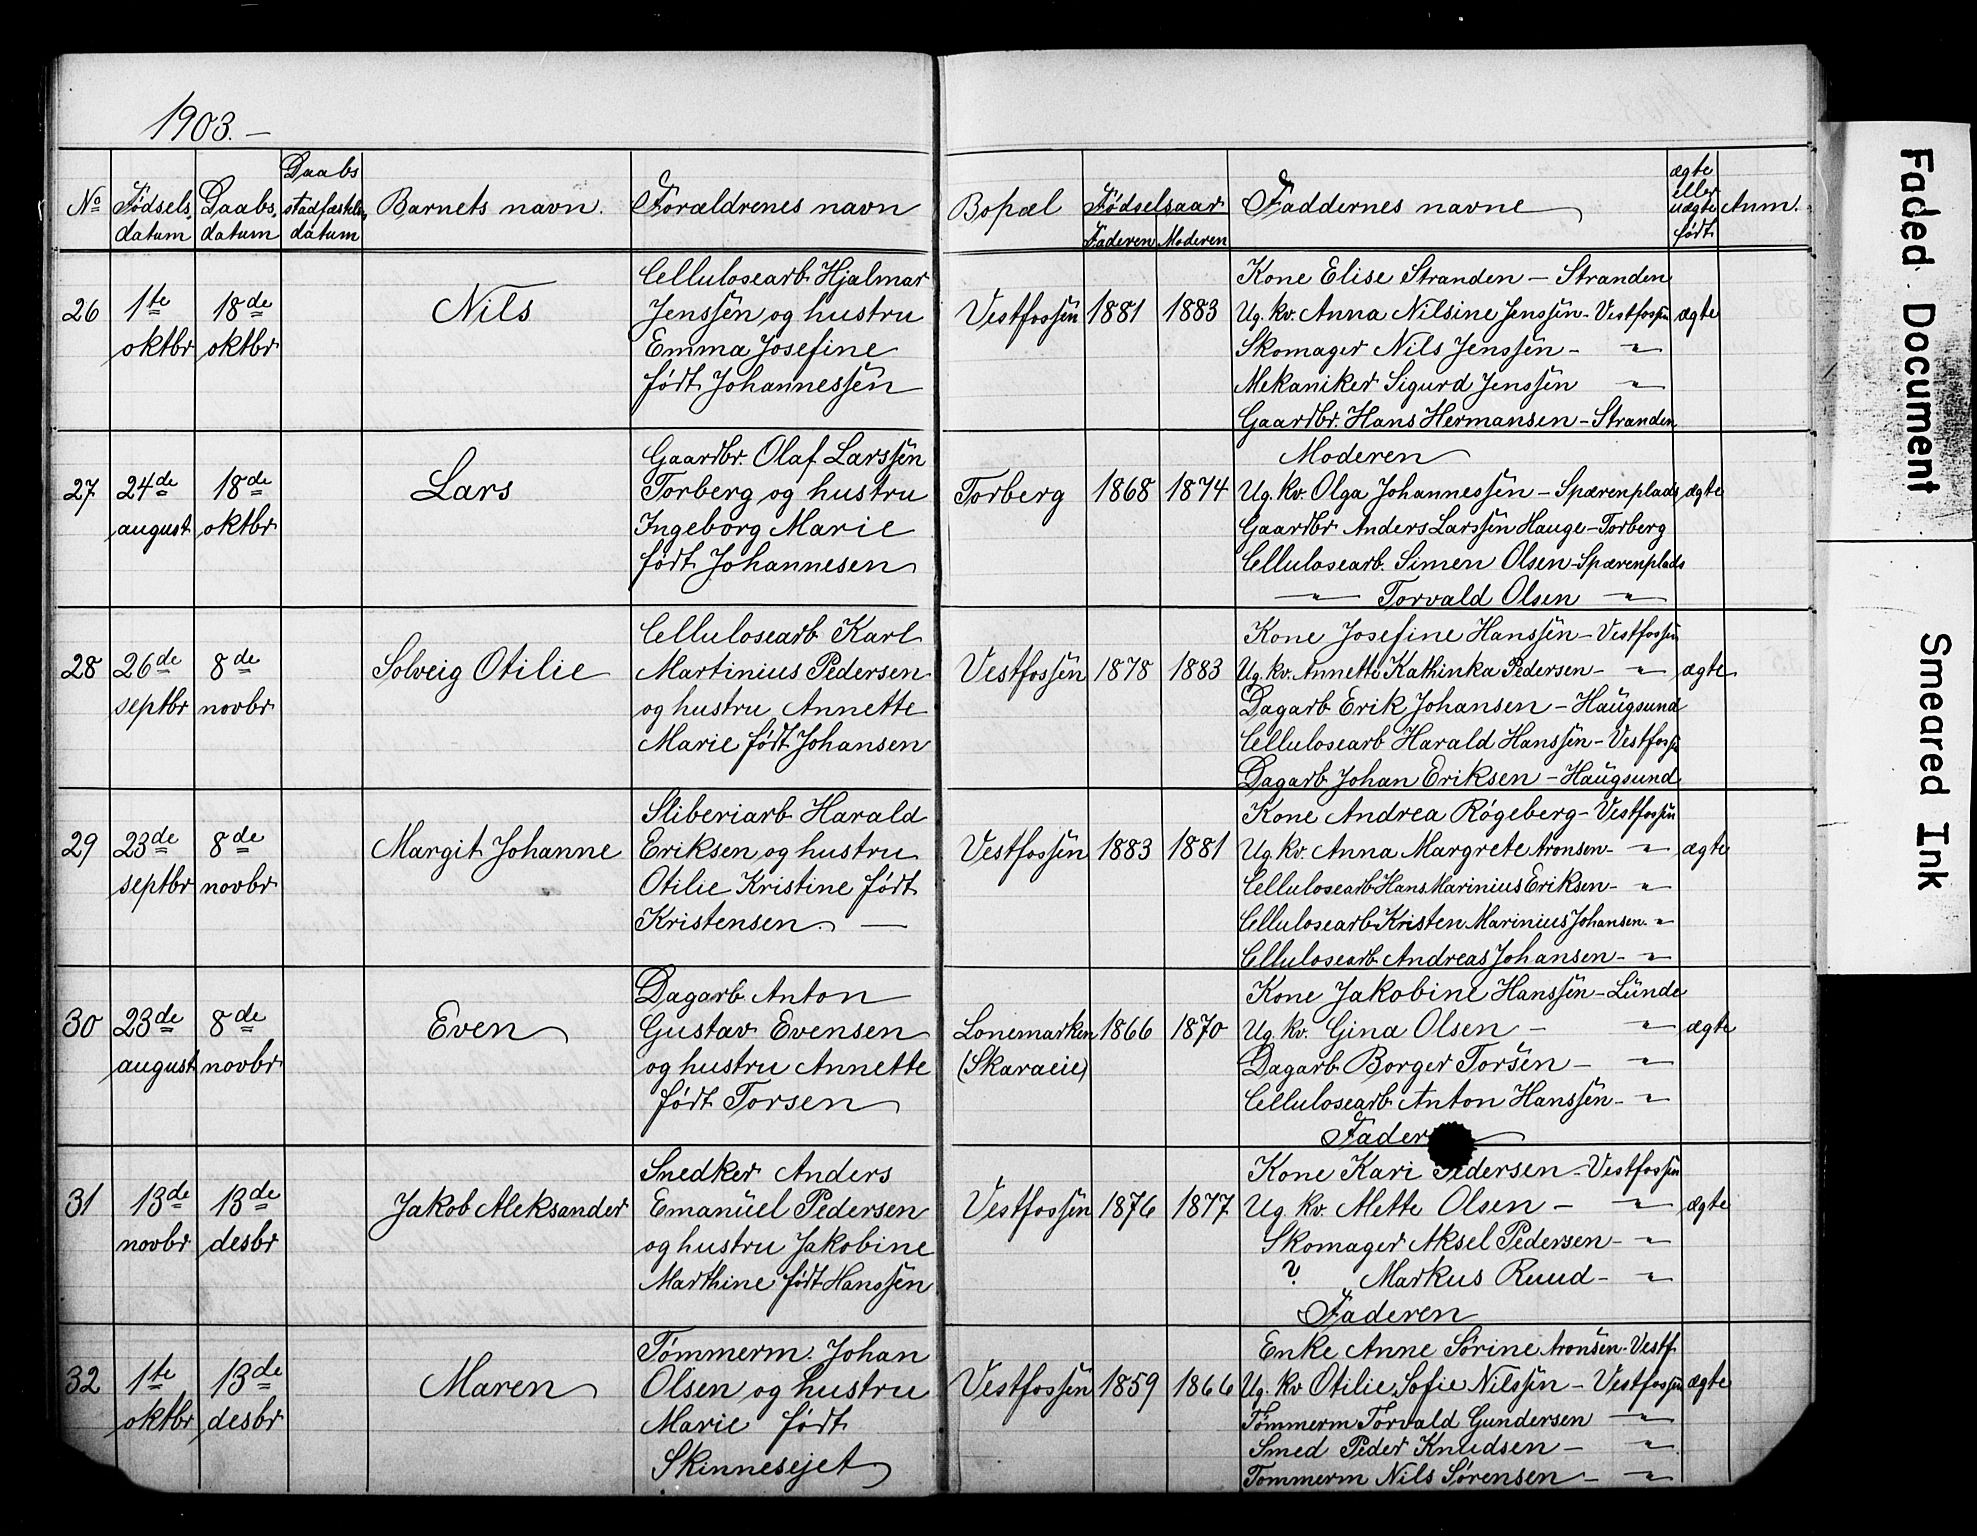 1903. —
No
Fødsels datum
Daabs datum
Daabs stadfæstelses datum
Barnets navn.
Forældrenes navn
Bopæl
Fødselsaar
Faderen
Moderen
Faddernes navne
ægte eller uægte født
Anm.
26
1te oktbr
18de oktbr
Nils
Cellulosearb. Hjalmar
Jenssen og hustru
Emma Josefine
født Johannessen
Vestfossen
1881
1883
Kone Elise Stranden — Stranden
Ug. kv. Anna Nilsine Jenssen - Vestfossen
Skomager Nils Jenssen - "
Mekaniker Sigurd Jenssen "
Gaardbr. Hans Hermansen - Stranden
ægte
27
24de august
18de oktbr
Lars
Gaardbr. Olaf Larssen
Torberg og hustru
Ingeborg Marie
født Johannesen
Torberg
1868
1874
Moderen
Ug. kv. Olga Johannessen - Spærenplads
Gaardbr. Anders Larssen Hauge - Torberg
Cellulosearb. Simen Olsen - Spærenplads
" Torvald Olsen "
ægte
28
26de septbr
8de novbr
Solveig Otilie
Cellulosearb Karl
Martinius Pedersen
og hustru Annette
Marie født Johansen
Vestfossen
1878
1883
Kone Josefine Hanssen - Vestfossen
Ug. kv. Annette Kathinka Pedersen - "
Dagarb Erik Johansen - Haugsund
Cellulosearb Harald Hanssen - Vestfoss
Dagarb Johan Eriksen - Haugsund
ægte
29
23de septbr
8de novbr
Margit Johanne
Sliberiarb Harald
Eriksen og hustru
Otilie Kristine født
Kristensen. —
Vestfossen
1883
1881
Kone Andrea Røgeberg - Vestfossen
Ug. kv. Anna Margrete Aronsen - "
Cellulosearb Hans Marinius Eriksen - "
Cellulosearb Kristen Marinius Johansen. "
Cellulosearb Andreas Johansen - "
ægte
30
23de august
8de novbr
Even
Dagarb Anton
Gustav Evensen
og hustru Annette
født Torsen
Lonemarken
(Skaraeie)
1866
1870
Kone Jakobine Hanssen - Lunde
Ug. kv. Gina Olsen - "
Dagarb Borger Torsen - "
Cellulosearb Anton Hanssen - "
Fader
ægte
31
13de novbr
13de desbr
Jakob Aleksander
Snedker Anders
Emanuel Pedersen
og hustru Jakobine
Marthine født Hanssen
Vestfossen
1876
1877
Kone Kari Pedersen - Vestfossen
Ug. kv. Mette Olsen - "
Skomager Aksel Pedersen - "
? Markus Ruud - "
Faderen
ægte
32
1te oktbr
13de desbr
Maren
Tømmerm. Johan
Olsen og hustru
Marie født
Skinnesejet
Vestfossen
1859
1866
Enke Anne Sørine Aronsen - Vestf.
Ug. kv. Otilie Sofie Nilssen - Vestfossen
Tømmerm Torvald Gundersen "
Smed Peder Knudsen - "
Tømmerm Nils Sørensen - "
ægte
Faded Document
Smeared Ink